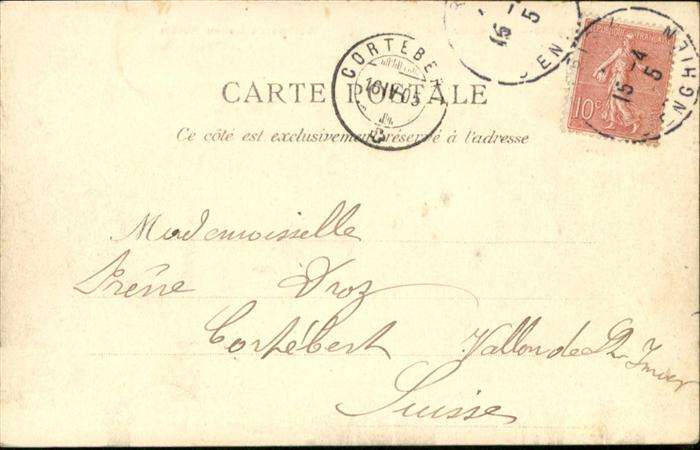 REPUBLIQUE FRANÇAISE
10c
15 -4 5
15 - 5
CORTEBE
16 IV 05
CARTE POSTALE
Ce côté est exclusivement réservé à l'adresse
Mademoisselle
Irène Droz
Cortébert Vallon de St Imier
Suisse